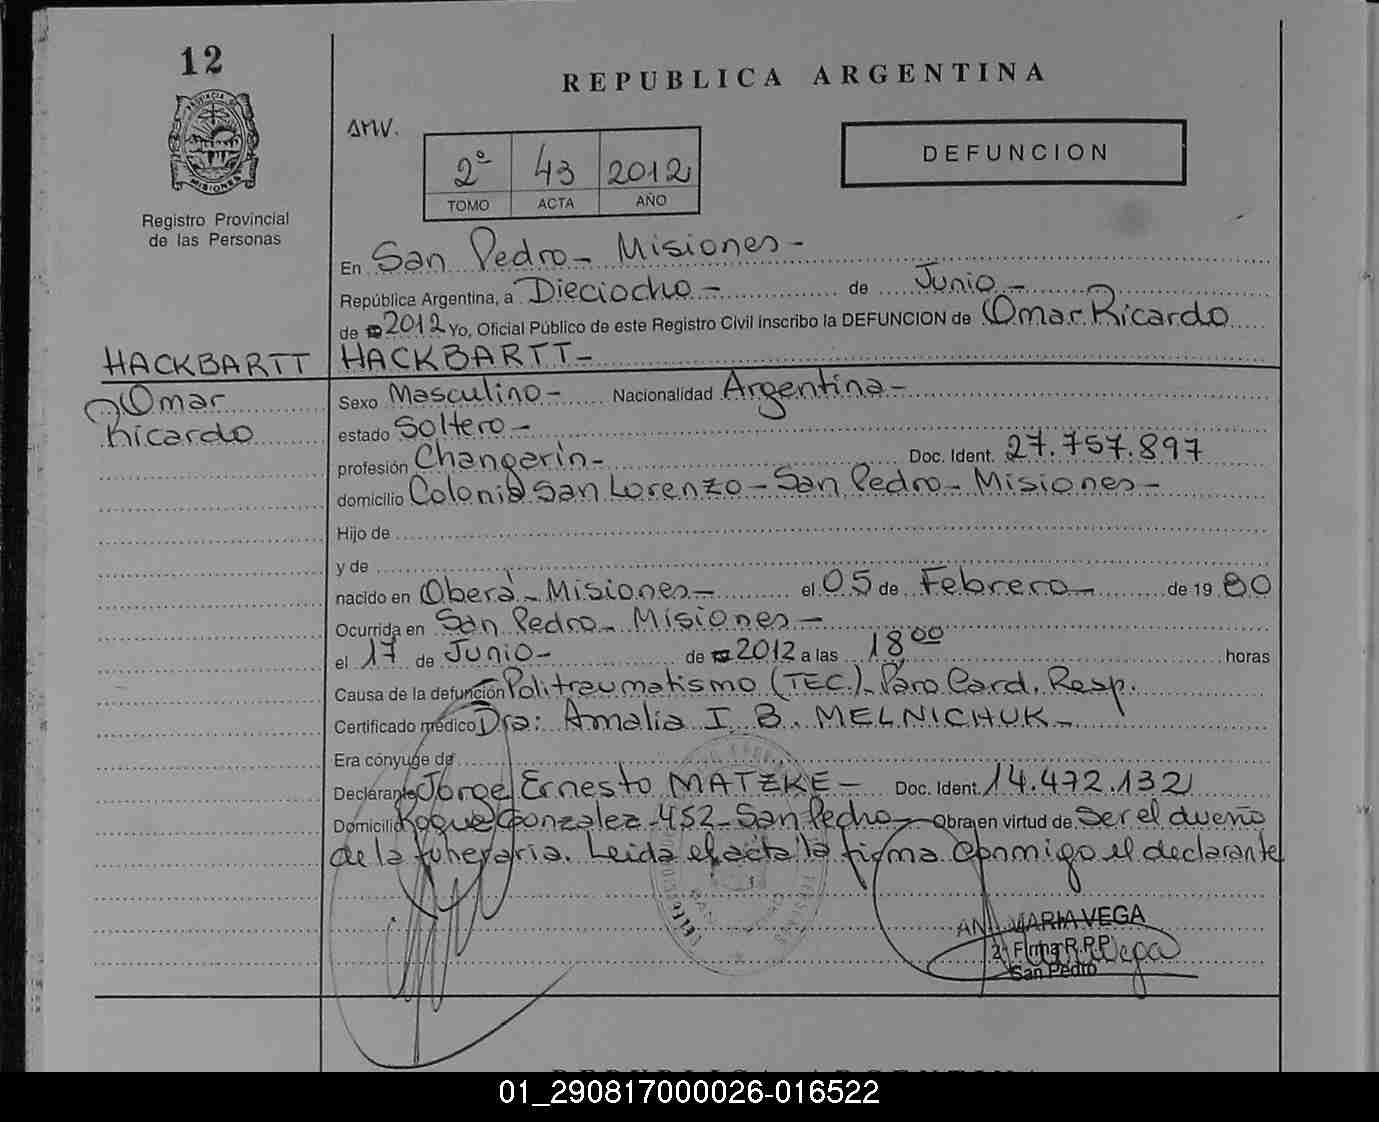 12
REPUBLICA ARGENTINA
AMV.
DEFUNCION
2º 43 2012
TOMO ACTA AÑO
PROVINCIA DE MISIONES
Registro Provincial
de las Personas
En San Pedro - Misiones -
República Argentina, a Dieciocho - de Junio -
de 2012 Yo, Oficial Público de este Registro Civil inscribo la DEFUNCION de Omar Ricardo
HACKBARTT HACKBARTT -
Omar
Ricardo
Sexo Masculino - Nacionalidad Argentina -
estado Soltero -
profesión Changarin - Doc. Ident. 27.757.897
domicilio Colonia San Lorenzo - San Pedro - Misiones -
Hijo de
y de
nacido en Oberá - Misiones - el 05 de Febrero - de 19 80
Ocurrida en San Pedro - Misiones -
el 17 de Junio - de 2012 a las 18 00 horas
Causa de la defunción Politraumatismo (TEC.) - Paro Card. Resp.
Certificado médico Dra: Amalia I. B. MELNICHUK -
Era cónyuge de
Declarante Jorge Ernesto MATZKE - Doc. Ident. 14.472.132
Domicilio Roque Gonzalez - 452 - San Pedro - Obra en virtud de Ser el dueño
de la funeraria. Leida el acta la firma conmigo el declarante
ANA MARIA VEGA
2ª Firma R.P.P.
San Pedro
REPUBLICA ARGENTINA
01_290817000026-016522